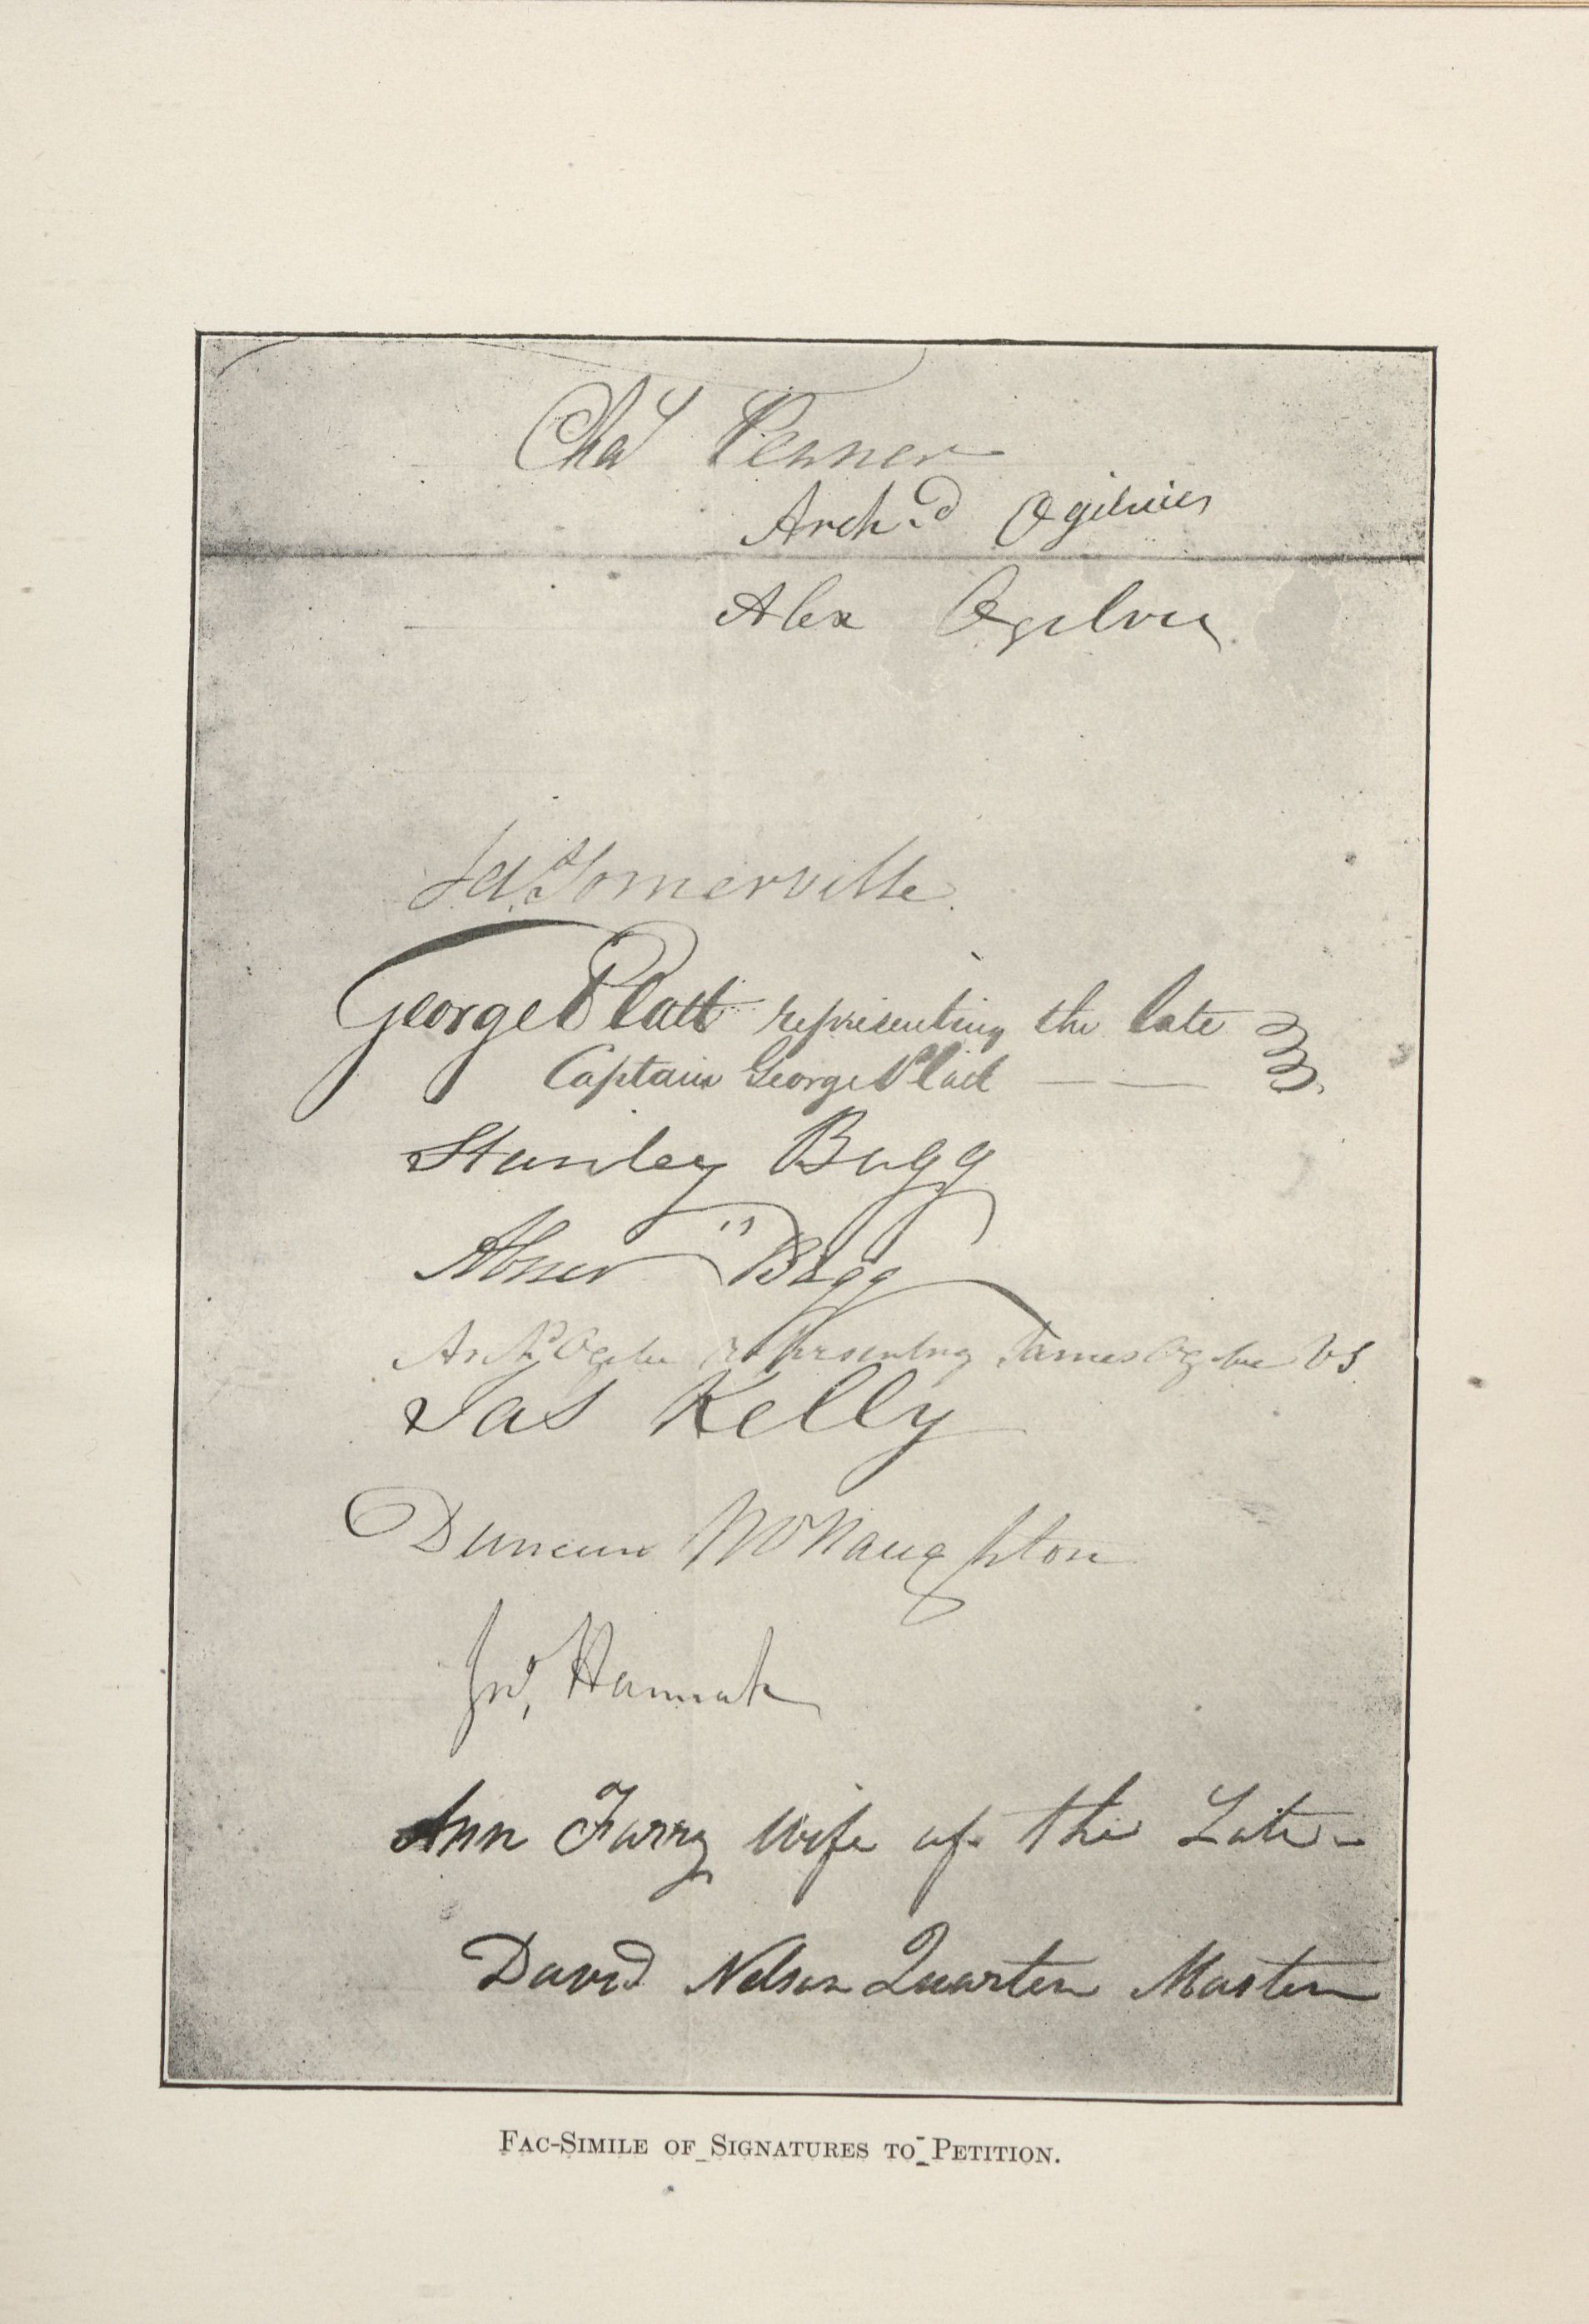 Chas Penner
Archd Ogilvies
Alex Ogilvie
Ja. Somerville
George Platt representing the late
Captain George Platt
Stanley Bagg
Abner Bagg
Archd Ogilvie representing James Ogilvie
Jas Kelly
Duncan McNaughton
Jno, Hannah
Ann Farry Wife of the Late
David Nelson Quarter Master
FAC-SIMILE OF SIGNATURES TO PETITION.